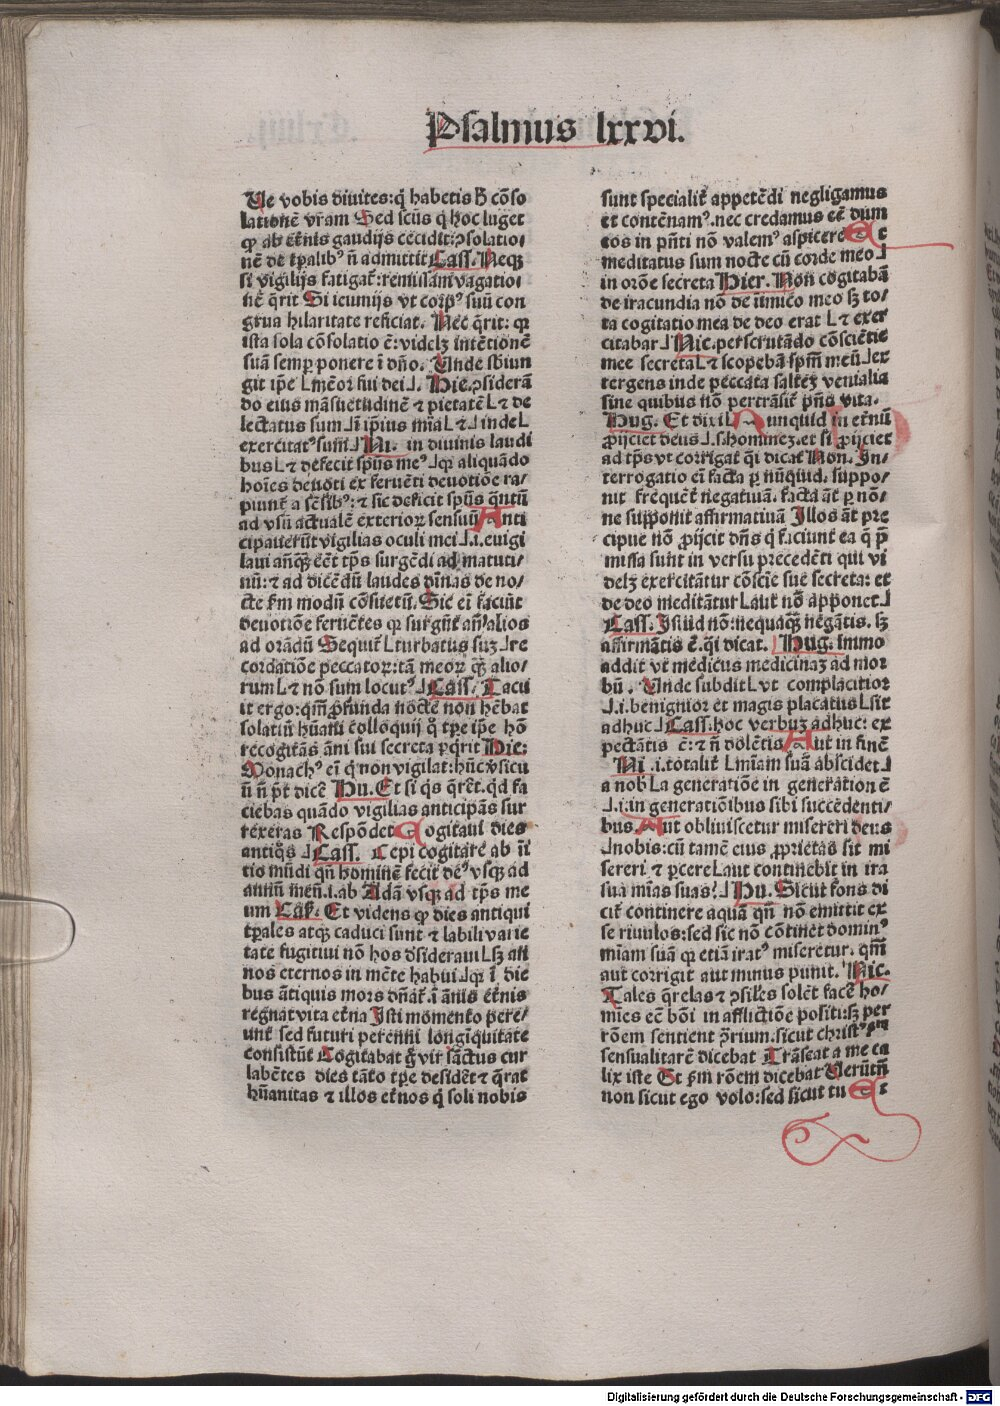 Psalmus lxxvi.
Ue vobis diuites: q̃ habetis ħ cõso
lationẽ vr̃am Sed scũs q̃ hoc luget
qꝙ ab et̃nis gaudijs cẽcidit: ꝯsolatio⸗
nẽ de tꝑalibꝰ ñ admittit Cass. Neqꝫ
si vigilijs fatigat̃: remissam̃ vagatio⸗
nẽ q̃rit Si ieiunijs vt corpꝰ suũ con
grua hilaritate reficiat. Nec q̃rit: qꝛ
ista sola cõsolatio ẽ: videlꝫ intẽtionẽ
suã semꝑ ponere ĩ dño. Unde sbiun
git ip̃e ⌊mẽor fui dei⌋. Hie. ꝯsiderã
do eius mãsuetudinẽ ⁊ pietatẽ ⌊⁊ de
lectatus sum⌋ ĩ ip̃ius mĩa ⌊⁊⌋ inde⌊
exercitatꝰ sum⌋ Ni. in diuinis laudi
bus ⌊⁊ defecit sp̃us meꝰ⌋ qꝛ aliquãdo
hoĩes deuoti ex feruẽti deuotiõe ra⸗
piunt̃ a sẽsibꝰ: ⁊ sic deficit sp̃us q̃ntũ
ad vsũ actualẽ exterioꝝ sensuũ Anti
cipauerũt vigilias oculi mei⌋.i. euigi
laui añqꝫ eẽt tp̃s surgẽdi ad matuti⸗
nũ: ⁊ ad dicẽdũ laudes diĩnas de no⸗
cte ẜm modũ cõsuetũ. Sic eĩ faciũt
deuotiõe feruẽtes qꝛ surgũt añ alios
ad orãdũ Sequit̃ ⌊turbatus sum⌋ re
cordatiõe peccatoꝝ: tã meoꝝ qꝫ alio⸗
rum ⌊⁊ nõ sum locutꝰ⌋ Cass. Tacu
it ergo: qm̃ ꝓfunda nocte non hẽbat
solatiũ hũani colloquij q̃ tꝑe ip̃e hõ
recogitãs ãni sui secreta ꝑq̃rit Hie:
Monachꝰ eĩ q̃ non vigilat: hũc v̓sicu
ũ ñ p̃t dicẽ Hu. Et si q̃s q̃ret. q̃d fa
ciebas quãdo vigilias anticipãs sur
rexeras Respõdet Cogitaui dies
antiq̃s⌋ Cass. Cepi cogitare ab ĩi
tio mũdi qñ hominẽ fecit deꝰ vsqꝫ ad
annũ meũ.i. ab Adã vsqꝫ ad tp̃s me
um Caß. Et videns qꝙ dies antiqui
tꝑales atqꝫ caduci sunt ⁊ labili varie
tate fugitiui nõ hos ꝺsideraui ⌊sꝫ an
nos eternos in mẽte habui⌋ qꝛ ĩ die
bus ãtiquis mors dñat̃. ĩ ãnis et̃nis
regnat vita et̃na Isti momento ꝑere⸗
unt̃ sed futuri perenni longĩquitate
consistũt Cogitabat g̃ vir sãctus cur
labẽtes dies tãto tꝑe desidet̃ ⁊ q̃rat
hũanitas ⁊ illos et̃nos q̃ soli nobis
sunt specialit̃ appetẽdi negligamus
et contẽnamꝰ. nec credamus eẽ dum
eos in p̃nti nõ valemꝰ aspicere Et
meditatus sum nocte cũ corde meo⌋
in orõe secreta Hier. Non cogitabã
de iracundia nõ de ĩimico meo sꝫ to⸗
ta cogitatio mea de deo erat ⌊⁊ exer
citabar⌋ Nic. perscrutãdo cõsciẽtie
mee secreta ⌊⁊ scopebã sp̃m meũ⌋ ex
tergens inde peccata saltẽ venialia
sine quibus nõ pertrãsit̃ p̃ñs vita.
Hug. Et dixi⌊ Nunquid in et̃nũ
ꝓijciet deus⌋.s. hominez. et si ꝓijciet
ad tp̃s vt corrigat̃ q̃i dicat Non. In⸗
terrogatio eĩ facta ꝑ nũq̃d. suppo⸗
nit frequẽt̃ negatiuã. facta ãt ꝑ nõ⸗
ne supponit affirmatiuã Illos ãt pre
cipue nõ ꝓijcit dñs q̃ faciunt ea q̃ p̃
missa sunt in versu precedẽti qui vi
delꝫ exercitãtur cõsciẽ sue secreta: et
de deo meditãtur ⌊aut nõ apponet⌋
Cass. Istud nõ: nequaq̃ꝫ negãtis. sꝫ
affirmãtis ẽ. q̃i dicat. Hug. immo
addit vt medicus medicinaꝫ ad mor
bũ. Unde subdit ⌊vt complacitior
⌋.i. benignior et magis placatus ⌊sit
adhuc⌋ Cass. hoc verbuꝫ adhuc: ex
pectãtis ẽ: ⁊ ñ dolẽtis Aut in finẽ
⌋ Ni .i. totalit̃ ⌊mĩam suã abscidet⌋
a nob̃ ⌊a generatiõe in generationẽ
⌋.i. in generatiõibus sibi succedenti⸗
bus Aut obliuiscetur misereri deus
⌋nobis: cũ tamẽ eius ꝓprietas sit mi
sereri ⁊ ꝑcere ⌊aut continebit in ira
sua mĩas suas:⌋ Hu. Sicut fons di
cit̃ continere aquã qñ nõ emittit ex
se riuulos: sed sic nõ cõtinet dominꝰ
mĩam suã qꝛ etiã iratꝰ miseretur. qm̃
aut corrigit aut minus punit. Nic.
Tales q̃relas ⁊ ꝯsiles solẽt facẽ ho⸗
mĩes eẽ bõi in afflictiõe positi: sꝫ per
rõem sentiunt ꝯ̃rium. sicut christꝰ ẜm
sensualitatẽ dicebat Trãseat a me ca
lix iste Et ẜm rõem dicebat Uerũtñ
non sicut ego volo: sed sicut tu Et
Digitalisierung gefördert durch die Deutsche Forschungsgemeinschaft - DFG